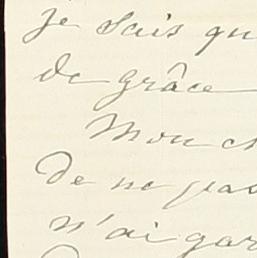 je sais qu
de grâce
Mon ch
de ne pas
n'ai gar